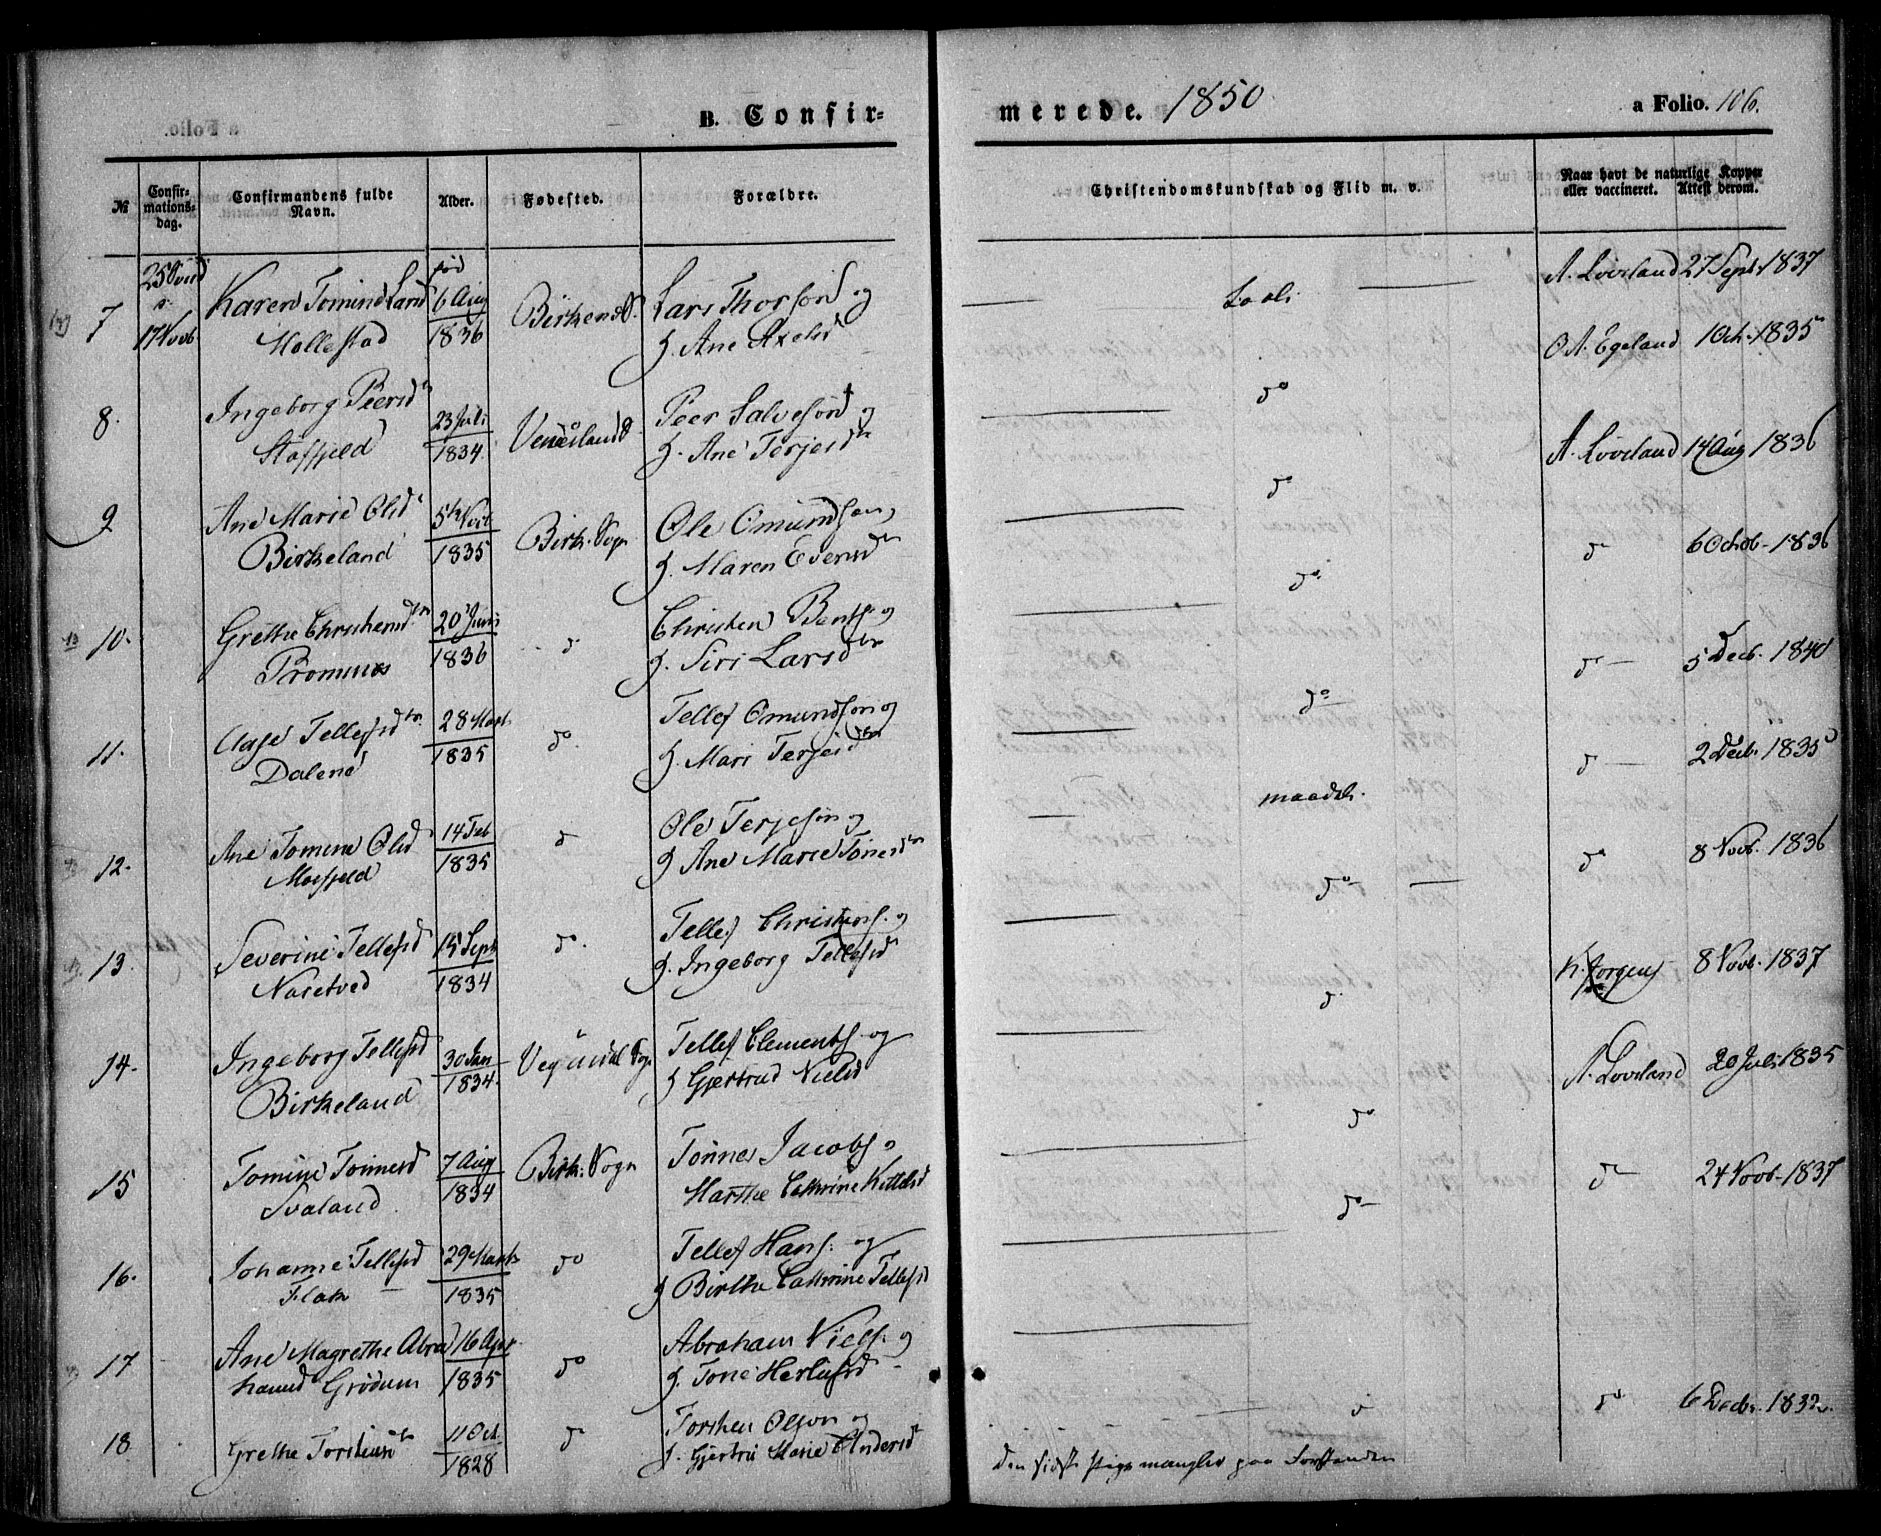 B. Confir-
merede. 1850
a Folio. 106.
№
Confir-
mations-
dag.
Confirmandens fulde
Navn.
Alder.
Fødested.
Forældre.
Christendomskundskab og Flid m. v.
Naar havt de naturlige Kopper
eller vaccineret. Attest derom.
7
17 Novb.
Karen Tomine Larsd
Mollestad
fød
6 Aug
1836
Birkenes S.
Lars Thorsøn og
H. Ane Axelsd
A. Løvland 27 Sept. 1837
8.
Ingeborg Peersdtr
Støpfjeld
23 Juli
1834.
Venneslands
Peer Salvesøn og
H. Ane Terjesdtr
do
O A. Egeland 1 Oct. 1835
9
Ane Marie Olsd
Birkeland
5te Novb
1835
Birk. Sogn
Ole Omundsøn,
H. Maren Evensdtr
do
A. Løvland 14 Aug 1836
10.
Grethe Christensdtr
20 Juni
1836
do
Christen Bents. og
H. Siri Larsdtr
do
do 6 Octob. 1836
11.
Aase Tellefsdtr.
Dalene
28 Mart.
1835
do
Tellef Omundsøn og
H. Mari Terjesdtr
do
do 5 Decb. 1840
12.
Ane Tomine Olsd
14 Feb
1835
do
Ole Terjesøn og
H. Ane Marie Tønnesdtr
maadel.
do 2 Decb. 1835
13.
Severine Tellefsd
Nasetved
15 Sept
1834
do.
Tellef Christians. og
H. Ingeborg Tellefsd
do
do 8 Novb. 1836
14.
Ingeborg Tellefsd
Birkeland
30 Jan
1834.
Vegusdal Sogn
Tellef Clements. og
H Gjertrud Nielsd
do
K. Jørgens 8 Novb. 1837
15
Tomine Tønnesd
Svaland
7 Aug
1834
Birk. Sogn
Tønnes Jacobs. og
Marthe Cathrine Kittelsd
do
A. Løvland 20 Juli 1835
16.
Johanne Tellefsd
Flak
29 Marts
1835
do
Tellef Hans. og
H Birthe Cathrine Tellefsd
do
do 24 Novb. 1837
17
Ane Magrethe Abra
hamsd Grødum
16 Apr.
1835
do
Abraham Niels. og
H. Tone Herlufsd
18
Grethe Torstensdtr
11 Oct.
1828
do
Torsten Olson og
H. Gjertru Marie Andersd
do
do 6 Decbr. 1832.
Den sidste Pige mangler paa Forstanden